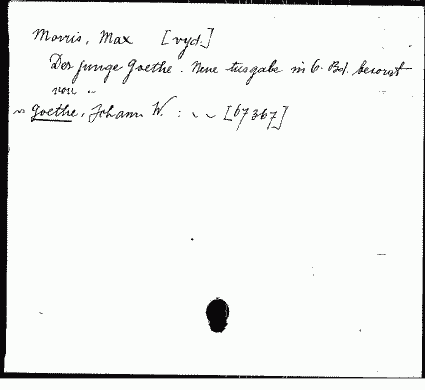 Morris, Max [vyd.]
Der junge Goethe. Neue Ausgabe in 6 Bd. besorgt
von "
~ Goethe, Johann W. : ~ ~ [67367]